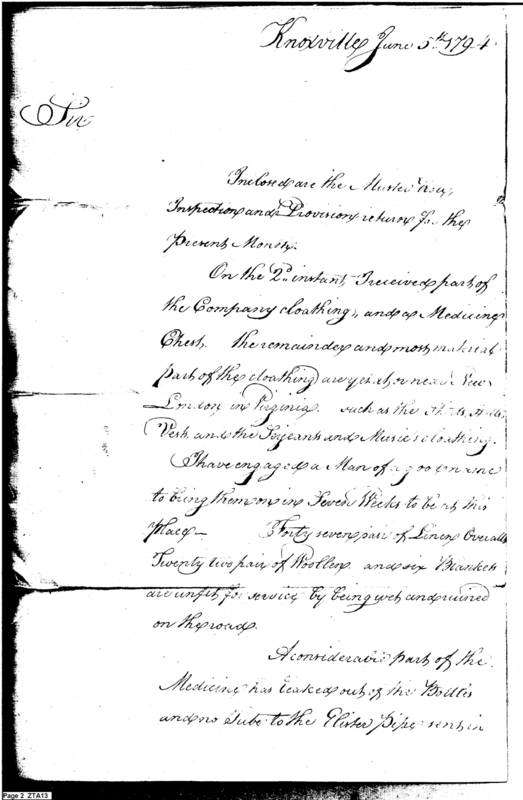 Knoxville June 5th 1794.
Sir
Inclosed are the Muster
Inspection and Provision return for the
Present Month.
On the 2d instant I received part of
the Company cloathing, and a Medicine
Chest. the remainder and most material
part of the cloathing are yet at or near New
London in Virginia. such as the
Vests and the Serjeants and Music's cloathing.
I have engaged a Man of a good name
to bring them on in Seven Weeks to be at this
place— Forty seven pair of Linen Overalls
Twenty two pair of Woollen and six Blankets
are unfit for service by being wet and ruined
on the road.
A considerable part of the
Medicine has leaked out of the Bottles
and no Tube to the Clister Pipe sent in
Page 2 ZTA13